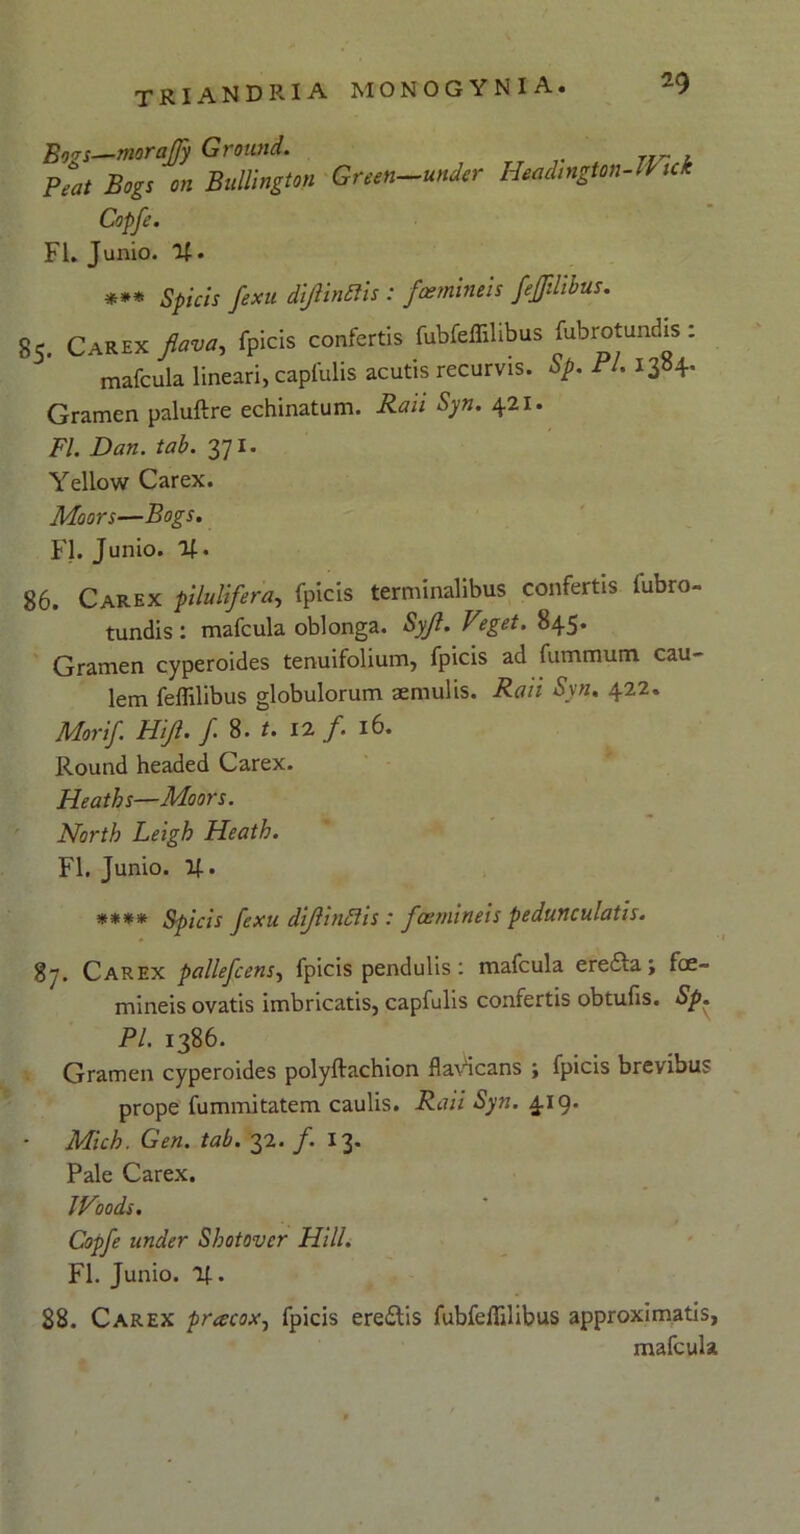 TRIANDRIA MONOGYNIA. 29
Bogs—moraſſy Ground.
Peat Bogs on Bullington Green—under Headington-Wick
Copſe.
Fl. Junio. ♃.
*** Spicis ſexu diſtinctis : fœmineis ſeſſilibus.
85. CAREX flava, ſpicis confertis ſubſeſſilibus ſubrotundis :
maſcula lineari, capſulis acutis recurvis. Sp. Pl. 1384.
Gramen paluſtre echinatum. Raii Syn. 421.
Fl. Dan. tab. 371.
Yellow Carex.
Moors—Bogs.
Fl. Junio. ♃.
86. CAREX pilulifera, ſpicis terminalibus confertis ſubro-
tundis : maſcula oblonga. Syſt. Veget. 845.
Gramen cyperoides tenuifolium, ſpicis ad ſummum cau-
lem ſeſſilibus globulorum æmulis. Raii Syn. 422.
Moriſ. Hiſt. ſ. 8. t. 12 f. 16.
Round headed Carex.
Heaths—Moors.
North Leigh Heath.
Fl. Junio. ♃.
**** Spicis ſexu diſtinctis : fœmineis pedunculatis.
87. CAREX palleſcens, ſpicis pendulis : maſcula erecta ; fœ-
mineis ovatis imbricatis, capſulis confertis obtuſis. Sp.
Pl. 1386.
Gramen cyperoides polyſtachion flavicans ; ſpicis brevibus
prope ſummitatem caulis. Raii Syn. 419.
Mich. Gen. tab. 32. f. 13.
Pale Carex.
Woods.
Copſe under Shotover Hill.
Fl. Junio. ♃.
88. CAREX præcox, ſpicis erectis ſubſeſſilibus approximatis,
maſcula